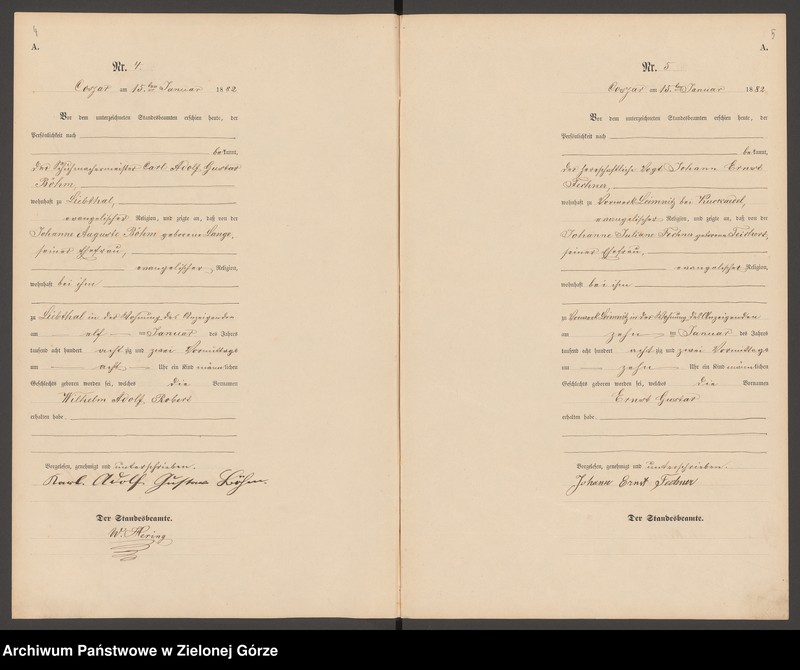 4
A.
Nr. 4.
Coszar am 15ten Januar 1882.
Vor dem unterzeichneten Standesbeamten erschien heute, der
Persönlichkeit nach
bekannt,
der Schuhmachermeister Carl Adolf Gustav
Böhm,
wohnhaft zu Liebthal,
evangelischer Religion, und zeigte an, daß von der
Johanne Auguste Böhm geborene Lange,
seiner Ehefrau,
evangelischer Religion,
wohnhaft bei ihm
zu Liebthal in der Wohnung des Anzeigenden
am elf ten Januar des Jahres
tausend acht hundert acht zig und zwei Vormittags
um acht Uhr ein Kind männlichen
Geschlechts geboren worden sei, welches die Vornamen
Wilhelm Adolf Robert
erhalten habe.
Vorgelesen, genehmigt und unterschrieben.
Karl Adolf Gustav Böhm.
Der Standesbeamte.
W. Hering
5
A.
Nr. 5
Coszar am 15ten Januar 1882.
Vor dem unterzeichneten Standesbeamten erschien heute, der
Persönlichkeit nach
bekannt,
der herrschaftliche Vogt Johann Ernst
Fechner,
wohnhaft zu Vorwerk Leimnitz bei
evangelischer Religion, und zeigte an, daß von der
Johanne Juliane Fechner geborene
seiner Ehefrau,
evangelischer Religion,
wohnhaft bei ihm
zu Vorwerk Leimnitz in der Wohnung des Anzeigenden
am zehn ten Januar des Jahres
tausend acht hundert acht zig und zwei Vormittags
um zehn Uhr ein Kind männlichen
Geschlechts geboren worden sei, welches die Vornamen
Ernst Gustav
erhalten habe.
Vorgelesen, genehmigt und unterschrieben.
Johann Ernst Fechner
Der Standesbeamte.
Archiwum Państwowe w Zielonej Górze